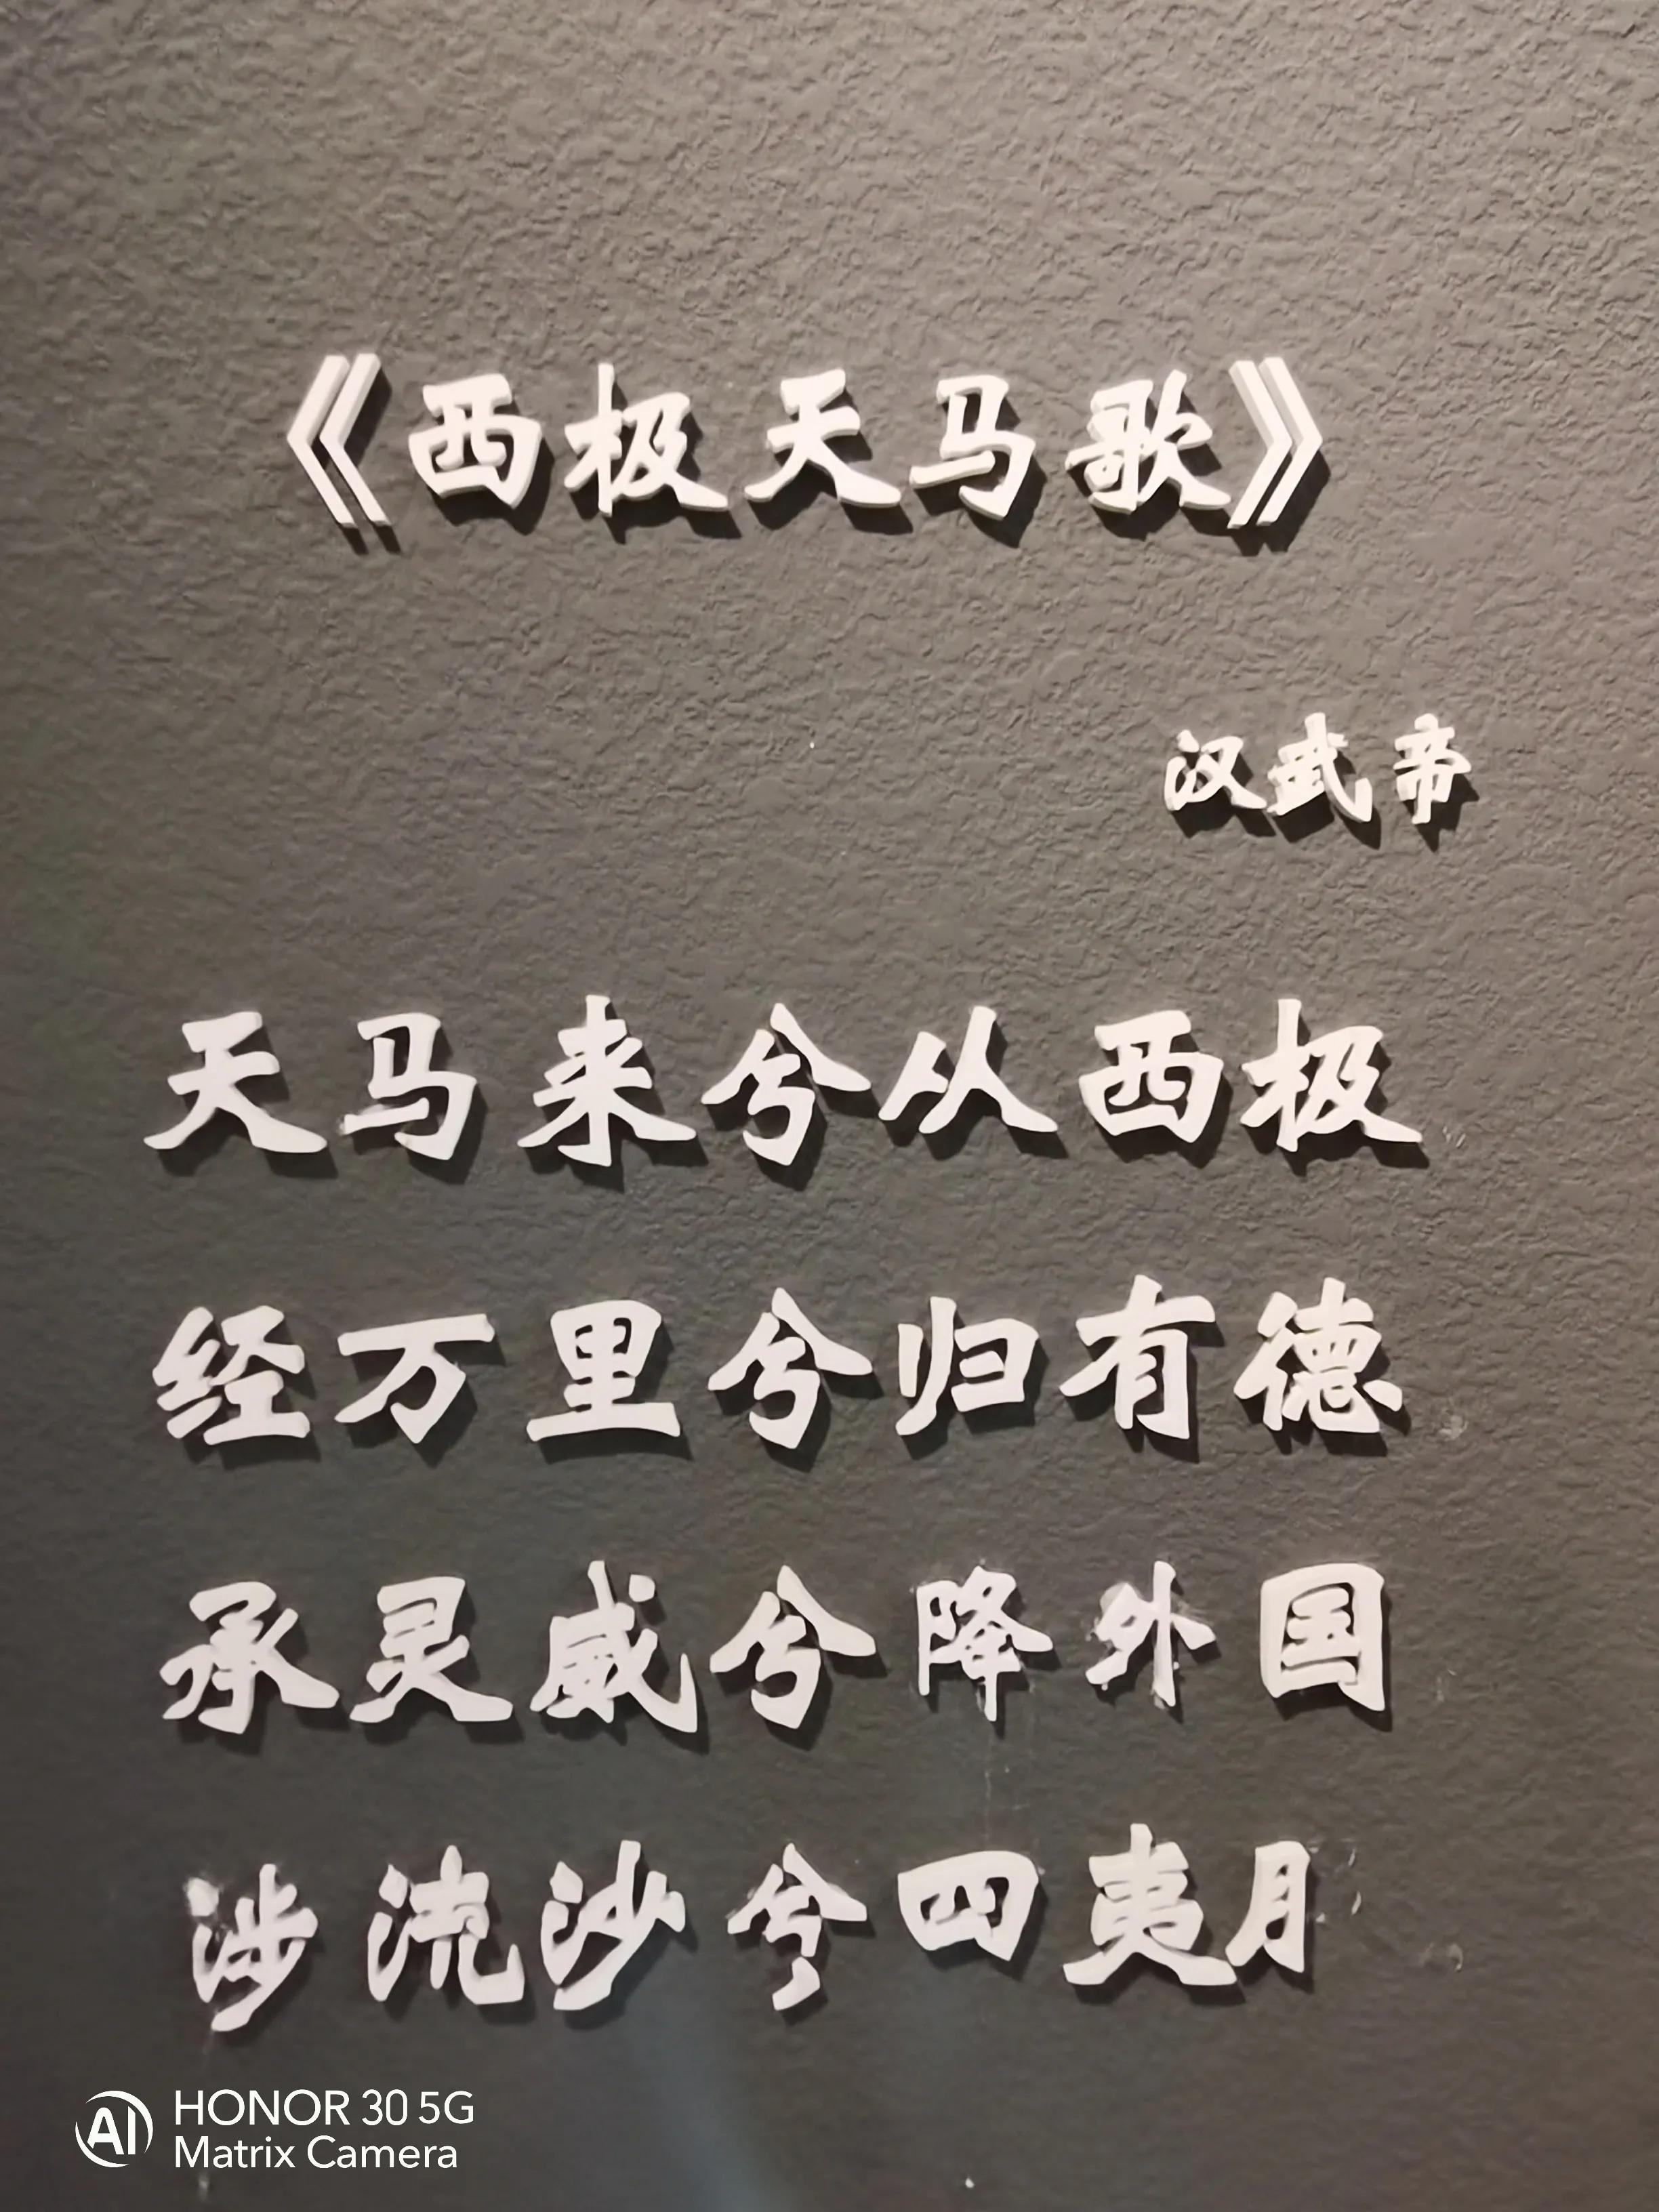 《西极天马歌》
汉武帝
天马来兮从西极
经万里兮归有德
承灵威兮降外国
涉流沙兮四夷月
HONOR 30 5G
Matrix Camera